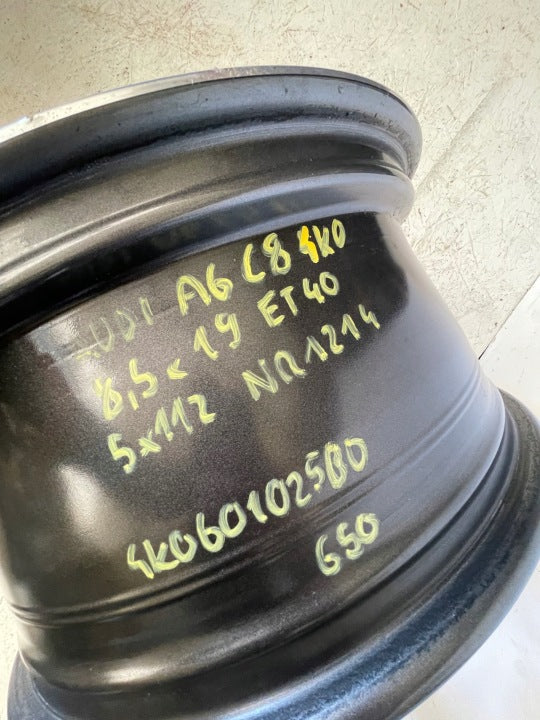 AUDI A6 C8 4K0
8,5x19 ET40
5x112 NR1214
4K0601025BD
650